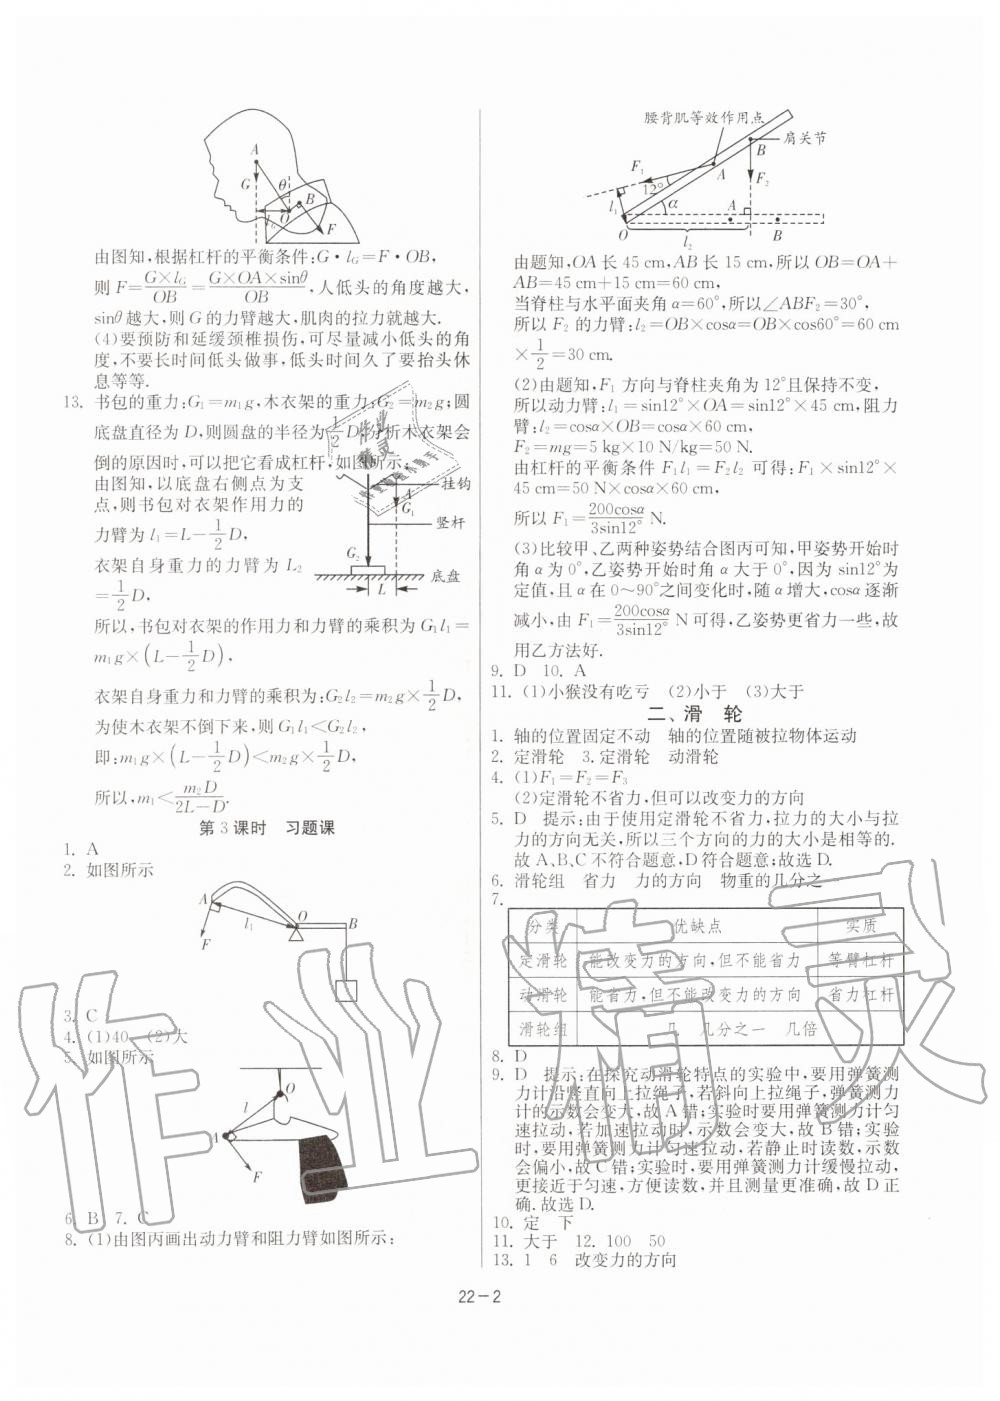 A
G
θ
B
O
l_G
F
由图知,根据杠杆的平衡条件:G·l_G=F·OB,
则F=G×l_G/OB=G×OA×sinθ/OB,人低头的角度越大,
sinθ越大,则G的力臂越大,肌肉的拉力就越大.
(4)要预防和延缓颈椎损伤,可尽量减小低头的角
度,不要长时间低头做事,低头时间久了要抬头休
息等等.
13. 书包的重力:G₁=m₁g,木衣架的重力:G₂=m₂g;圆
底盘直径为D,则圆盘的半径为1/2D,分析木衣架会
倒的原因时,可以把它看成杠杆,如图所示;
由图知,以底盘右侧点为支
点,则书包对衣架作用力的
力臂为l₁=L-1/2D,
衣架自身重力的力臂为L₂
=1/2D,
挂钩
A
G₁
竖杆
G₂
底盘
L
所以,书包对衣架的作用力和力臂的乘积为G₁l₁=
m₁g×(L-1/2D),
衣架自身重力和力臂的乘积为:G₂l₂=m₂g×1/2D,
为使木衣架不倒下来,则G₁l₁<G₂l₂,
即:m₁g×(L-1/2D)<m₂g×1/2D,
所以,m₁<m₂D/2L-D.
第3课时 习题课
1. A
2. 如图所示
A
O
B
l₁
F
3. C
4. (1)40 (2)大
5. 如图所示
O
l
A
F
6. B 7. C
8. (1)由图丙画出动力臂和阻力臂如图所示:
腰背肌等效作用点
肩关节
B
F₁
A
F₂
12°
l₁
α
A
O
l₂
B
由题知,OA长45 cm,AB长15 cm,所以OB=OA+
AB=45 cm+15 cm=60 cm,
当脊柱与水平面夹角α=60°,所以∠ABF₂=30°,
所以F₂的力臂:l₂=OB×cosα=OB×cos60°=60 cm
×1/2=30 cm.
(2)由题知,F₁方向与脊柱夹角为12°且保持不变,
所以动力臂:l₁=sin12°×OA=sin12°×45 cm,阻力
臂:l₂=cosα×OB=cosα×60 cm,
F₂=mg=5 kg×10 N/kg=50 N.
由杠杆的平衡条件F₁l₁=F₂l₂可得:F₁×sin12°×
45 cm=50 N×cosα×60 cm,
所以F₁=200cosα/3sin12° N.
(3)比较甲、乙两种姿势结合图丙可知,甲姿势开始时
角α为0°,乙姿势开始时角α大于0°,因为sin12°为
定值,且α在0~90°之间变化时,随α增大,cosα逐渐
减小,由F₁=200cosα/3sin12° N可得,乙姿势更省力一些,故
用乙方法好.
9. D 10. A
11. (1)小猴没有吃亏 (2)小于 (3)大于
二、滑 轮
1. 轴的位置固定不动 轴的位置随被拉物体运动
2. 定滑轮 3. 定滑轮 动滑轮
4. (1)F₁=F₂=F₃
(2)定滑轮不省力,但可以改变力的方向
5. D 提示:由于使用定滑轮不省力,拉力的大小与拉
力的方向无关,所以三个方向的力的大小是相等的.
故A、B、C不符合题意,D符合题意;故选D.
6. 滑轮组 省力 力的方向 物重的几分之一
7.
分类 优缺点 实质
定滑轮 能改变力的方向,但不能省力 等臂杠杆
动滑轮 能省力,但不能改变力的方向 省力杠杆
滑轮组 几 几分之一 几倍
8. D
9. D 提示:在探究动滑轮特点的实验中,要用弹簧测
力计沿竖直向上拉绳子,若斜向上拉绳子,弹簧测力
计的示数会变大,故A错;实验时要用弹簧测力计匀
速拉动,若加速拉动时,示数会变大,故B错;实验
时,要用弹簧测力计匀速拉动,若静止时读数,示数
会偏小,故C错;实验时要用弹簧测力计缓慢拉动,
更接近于匀速,方便读数,并且测量更准确,故D正
确.故选D.
10. 定 下
11. 大于 12. 100 50
13. 1 6 改变力的方向
22-2
作业精灵